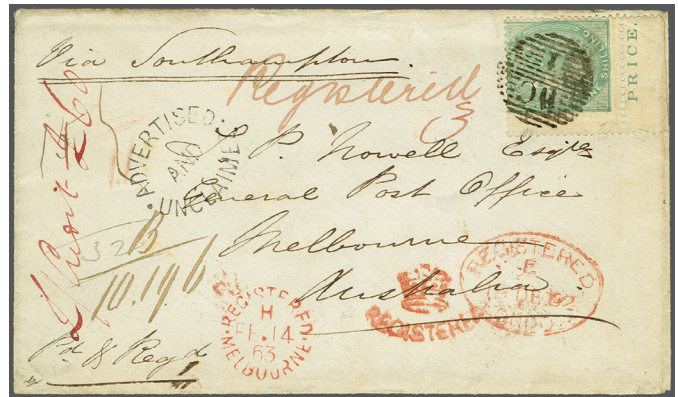 Via Southampton.
Registered
3
PRICE.
SHILLING
ADVERTISED
AND
UNCLAIMED
P. Nowell Esqre
General Post Office
Melbourne
Australia
32
B
10.196
REGISTERED
H
FE 14
63
MELBOURNE
REGISTERED
REGISTERED
E
DE 62
Pd & Regd